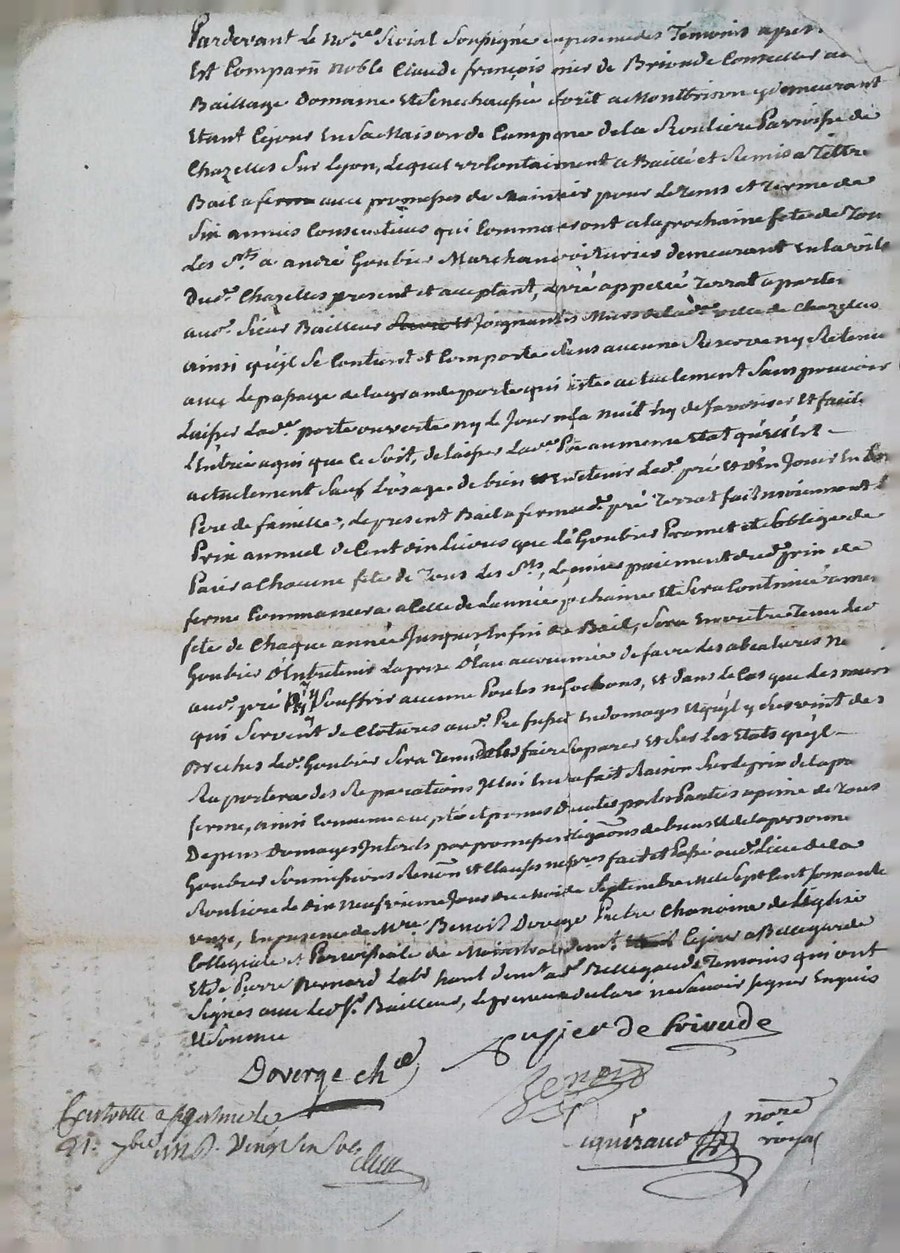 Pardevant Le no.re Roial Soussigné en presence des Temoins apres
Est Comparu noble Claude françois de Brioude Conseiller au
Baillage Domaine et Senechaussée forêt a Montbrison y demeurant
Etant Ce jour En Sa Maison de Campagne de la Rouliere Parroisse de
Chazelles Sur Lyon, Lequel volontairement a Baillé et Remis a Tiltre
Bail a ferme avec promesses de Maintenir pour Le tems et terme de
Six années Consecutives qui Commanseront a la prochaine fete de Tou
Les S.ts a andré Goubier Marchand voiturier demeurant En la ville
Dud.t Chazelles present et acceptant, Le pré appellé Terrat aparten
aud.t Sieur Bailleur et Joignant Les Murs de la d.e ville de Chazelles
ainsi qu'il Se Contient et Comporte Sans aucune Reserve ny Retenue
avec Le passage de la grande porte qui Existe actuellement Sans pouvoir
Laisser Lad.e porte ouverte ny Le Jour ny La nuit ny de favoriser Et facil
L'Entrée a qui que Ce Soit, de laisser Lad.e au meme Etat qu'elle Est
actuellement Sauf L'usage de bien Entretenir Led.t pré Et d'En Jouir En bon
Pere de famille, Le present Bail a ferme dud.t pré Terrat fait moienant L
Prix annuel de Cent dix Livres que Led. Goubier Promet et S'oblige de
Paier a Chacune fete de Tous Les S.ts, Le premier paiement dud.t prix de
ferme Commancera a Celle de L'année prochaine Et Sera Continué a meme
fete de Chaque année Jusques En fin de Bail, Sera En outre Tenu Led
Goubier d'Entretenir La prise d'Eau accoutumée de faire des abcatures ne
aud.t pré ny Souffrir aucune Poules ny Cochons, et dans Le Cas que des murs
qui Servent de Clotures aud.t Pré fussent Endomagés Et qu'il y Survint des
Breches Led.t Goubier Sera Tenu de les faire Reparer Et Sur Les Etats qu'il
Raportera des Reparations Il Lui Sera fait Raison Sur Le prix de la p
ferme, ainsi Convenu accepté et promis Executer par Les Parties a peine de Tous
Depens Domages Interets par promesses de biens Et de la personne
Goubier Soumissions Renon et Clauses fait et Passé aud.t Lieu de la
Rouliere Le dix neufvieme Jour du Mois de Septembre Mil Sept Cent Soixante
onze, En presence de M.re Benoit Doverge Prêtre Chanoine de L'église
Collegiale et Parroissiale de Ce jour a Bellegarde
Et de Pierre Bernard Lab.r dem.t a Bellegarde Temoins qui ont
Signés avec Led. S.r Bailleur, Le preneur declaré ne Savoir Signer Enquis
Et Sommé
Doverge ch.e
de Brioude
no.re royal
Controlle a
21. 7bre 1771 R. Vingt Six Sols